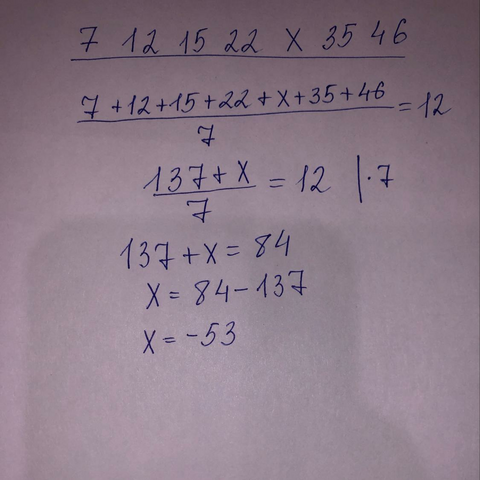 7 12 15 22 x 35 46
7+12+15+22+x+35+46
7
=12
137+x
7
= 12 |·7
137+x = 84
x = 84-137
x = -53